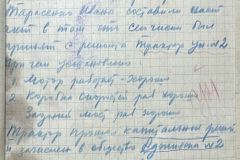 Тарасенко Ивана составили акт
в том что сего числа был
принят с ремонта трактор Ун. №2
При чем установлено
1 Мотор работает - хорошо
2 Коробка скоростей раб. хорошо
Задний мост раб хорошо
Трактор прошел капитальный рем.
и зачислен в общество №2